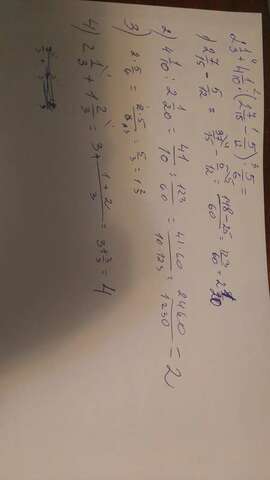 2 1/3 + 4 1/10 · (2 7/15 - 5/12) · 5/6
1) 2 7/15 - 5/12 = 37/15 - 5/12 = 148-25/60 = 123/60 = 2 1/20
2) 4 1/10 · 2 1/20 = 41/10 : 123/60 = 41·60/10·123 = 2460/1230 = 2
3) 2·5/6 = 2·5/6 = 5/3 = 1 2/3
4) 2 1/3 + 1 2/3 = 3 + 1+2/3 = 3+3/3 = 4